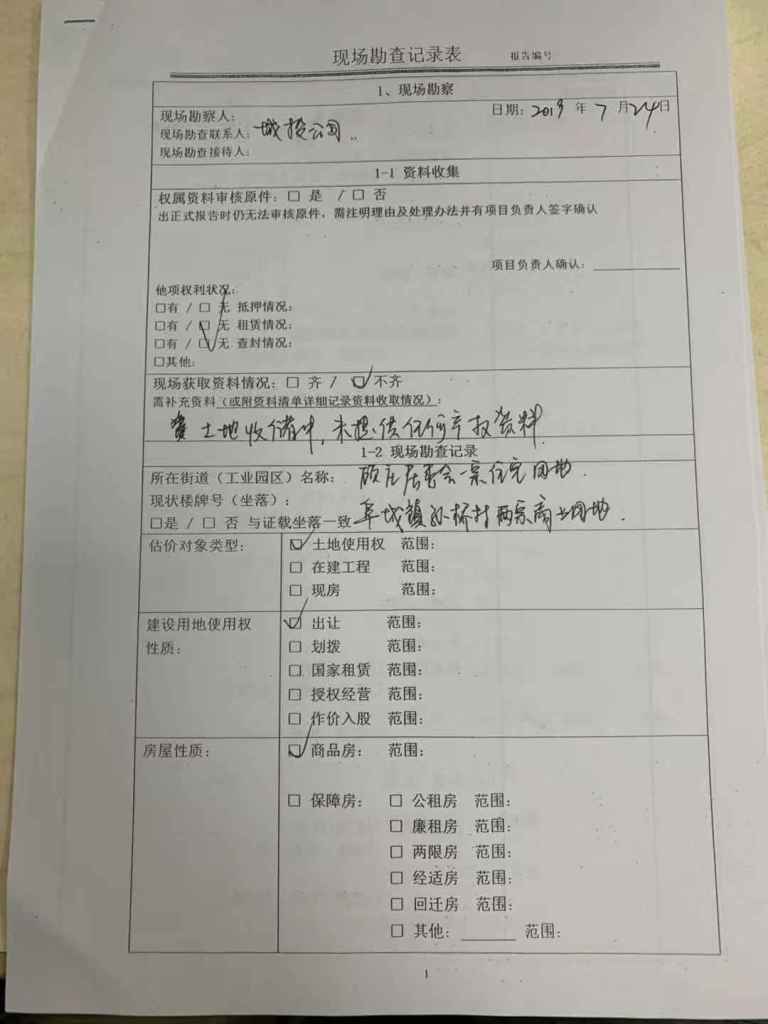 现场勘查记录表 报告编号
1、现场勘察
现场勘察人： 日期：2019 年 7 月24日
现场勘查联系人：城投公司
现场勘查接待人：
1-1 资料收集
权属资料审核原件：□ 是 /□ 否
出正式报告时仍无法审核原件，需注明理由及处理办法并有项目负责人签字确认
项目负责人确认：
他项权利状况：
□有 / □ 无 抵押情况：
□有 / ☑ 无 租赁情况：
□有 / □ 无 查封情况：
□其他：
现场获取资料情况：□ 齐 / ☑ 不齐
需补充资料（或附资料清单详细记录资料收取情况）：
土地收储中，未提供任何产权资料
1-2 现场勘查记录
所在街道（工业园区）名称： 顾庄居委会一宗住宅用地.
现状楼牌号（坐落）：
□是 / □ 否 与证载坐落一致 阜城镇孙桥村两宗商业用地.
估价对象类型： ☑ 土地使用权 范围：
□ 在建工程 范围：
□ 现房 范围：
建设用地使用权 ☑ 出让 范围：
性质： □ 划拨 范围：
□ 国家租赁 范围：
□ 授权经营 范围：
□ 作价入股 范围：
房屋性质： ☑ 商品房： 范围：
□ 保障房： □ 公租房 范围：
□ 廉租房 范围：
□ 两限房 范围：
□ 经适房 范围：
□ 回迁房 范围：
□ 其他：______ 范围：
1